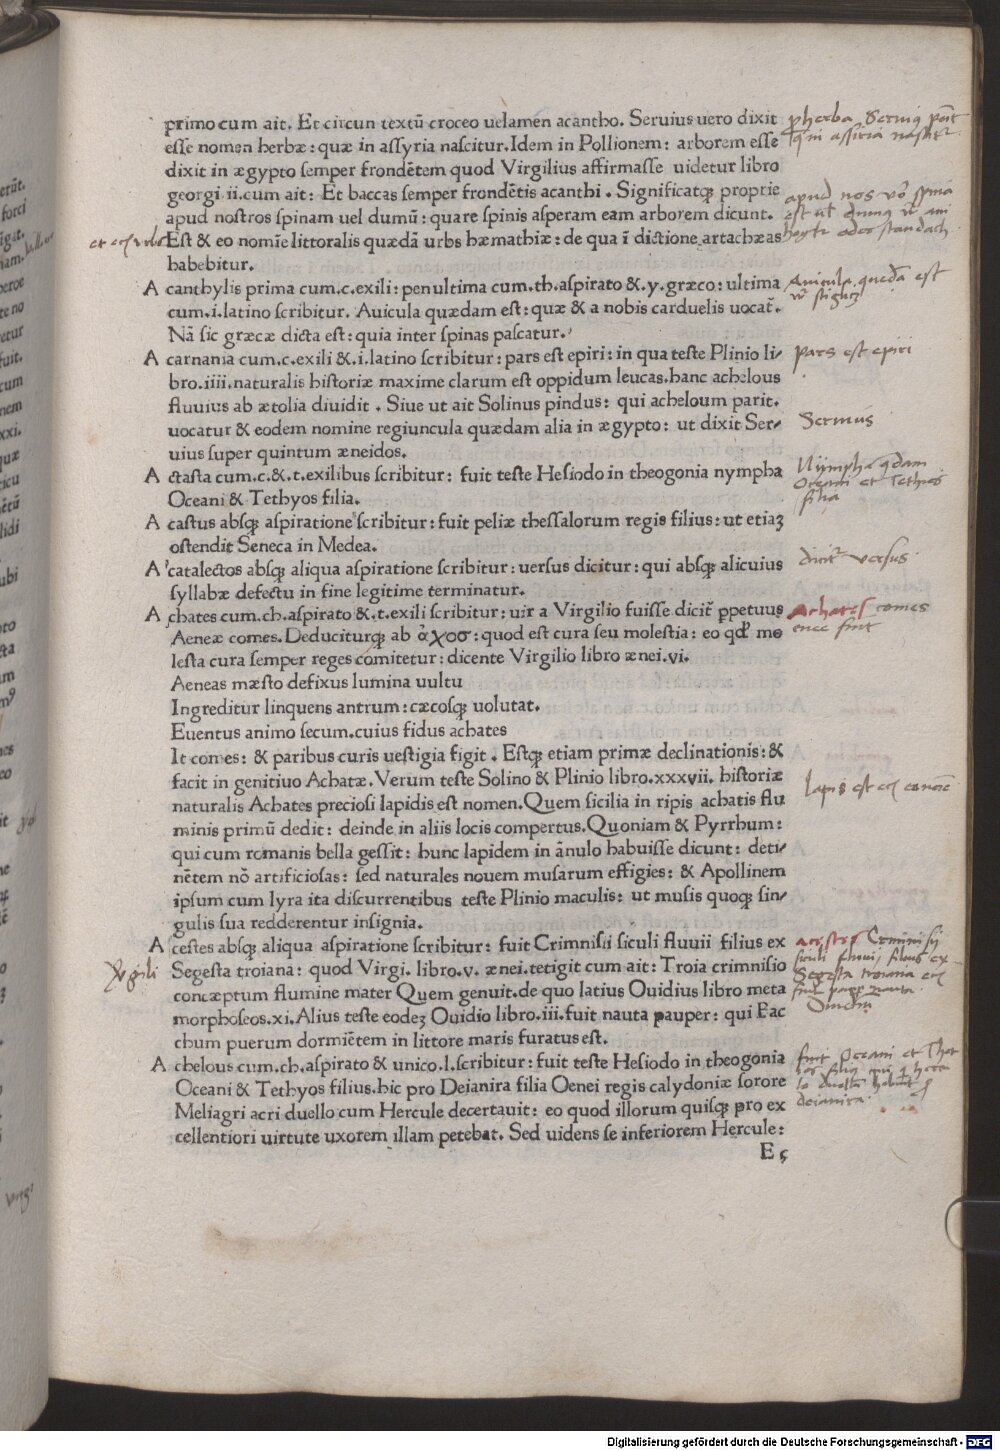 primo cum ait. Et circun textū croceo uelamen acantho. Seruius uero dixit
esse nomen herbæ: quæ in assyria nascitur. Idem in Pollionem: arborem esse
dixit in ægypto semper frondētem quod Virgilius affirmasse uidetur libro
georgi ii. cum ait: Et baccas semper frondētis acanthi . Significatqꝫ proprie
apud nostros spinam uel dumū: quare spinis asperam eam arborem dicunt.
Est & eo nomīe littoralis quædā urbs hæmathiæ: de qua ī dictione artachæas
habebitur.
A canthylis prima cum .c. exili: penultima cum .th. aspirato & .y. græco: ultima
cum .i. latino scribitur. Auicula quædam est: quæ & a nobis carduelis uocat̄.
Nā sic græce dicta est: quia inter spinas pascatur.
A carnania cum .c. exili & .i. latino scribitur: pars est epiri: in qua teste Plinio li/
bro .iiii. naturalis historiæ maxime clarum est oppidum leucas. hanc achelous
fluuius ab ætolia diuidit . Siue ut ait Solinus pindus: qui acheloum parit.
uocatur & eodem nomine regiuncula quædam alia in ægypto: ut dixit Ser/
uius super quintum æneidos.
A ctasta cum .c. & .t. exilibus scribitur: fuit teste Hesiodo in theogonia nympha
Oceani & Tethyos filia.
A castus absqꝫ aspiratione scribitur: fuit peliæ thessalorum regis filius: ut etiaꝫ
ostendit Seneca in Medea.
A catalectos absqꝫ aliqua aspiratione scribitur: uersus dicitur: qui absqꝫ alicuius
syllabæ defectu in fine legitime terminatur.
A chates cum .ch. aspirato & .t. exili scribitur: uir a Virgilio fuisse dicit̄ ꝑpetuus
Aeneæ comes. Deduciturqꝫ ab ἀχοσ: quod est cura seu molestia: eo qđ mo
lesta cura semper reges comitetur: dicente Virgilio libro ænei. vi.
Aeneas mæsto defixus lumina uultu
Ingreditur linquens antrum: cæcosqꝫ uolutat.
Euentus animo secum. cuius fidus achates
It comes: & paribus curis uestigia figit . Estqꝫ etiam primæ declinationis: &
facit in genitiuo Achatæ. Verum teste Solino & Plinio libro .xxxvii. historiæ
naturalis Achates preciosi lapidis est nomen. Quem sicilia in ripis achatis flu
minis primū dedit: deinde in aliis locis compertus. Quoniam & Pyrrhum:
qui cum romanis bella gessit: hunc lapidem in ānulo habuisse dicunt: deti/
nētem nō artificiosas: sed naturales nouem musarum effigies: & Apollinem
ipsum cum lyra ita discurrentibus teste Plinio maculis: ut musis quoqꝫ sin/
gulis sua redderentur insignia.
A cestes absqꝫ aliqua aspiratione scribitur: fuit Crimnisii siculi fluuii filius ex
Segesta troiana: quod Virgi. libro .v. ænei. tetigit cum ait: Troia crimnisio
concæptum flumine mater Quem genuit. de quo latius Ouidius libro meta
morphoseos .xi. Alius teste eodeꝫ Ouidio libro .iii. fuit nauta pauper: qui Bac
chum puerum dormiētem in littore maris furatus est.
A chelous cum .ch. aspirato & unico .l. scribitur: fuit teste Hesiodo in theogonia
Oceani & Tethyos filius. hic pro Deianira filia Oenei regis calydoniæ sorore
Meliagri acri duello cum Hercule decertauit: eo quod illorum quisqꝫ pro ex
cellentiori uirtute uxorem illam petebat. Sed uidens se inferiorem Hercule:
pars est epiri
Seruius
Achates comes
Digitalisierung gefördert durch die Deutsche Forschungsgemeinschaft - DFG